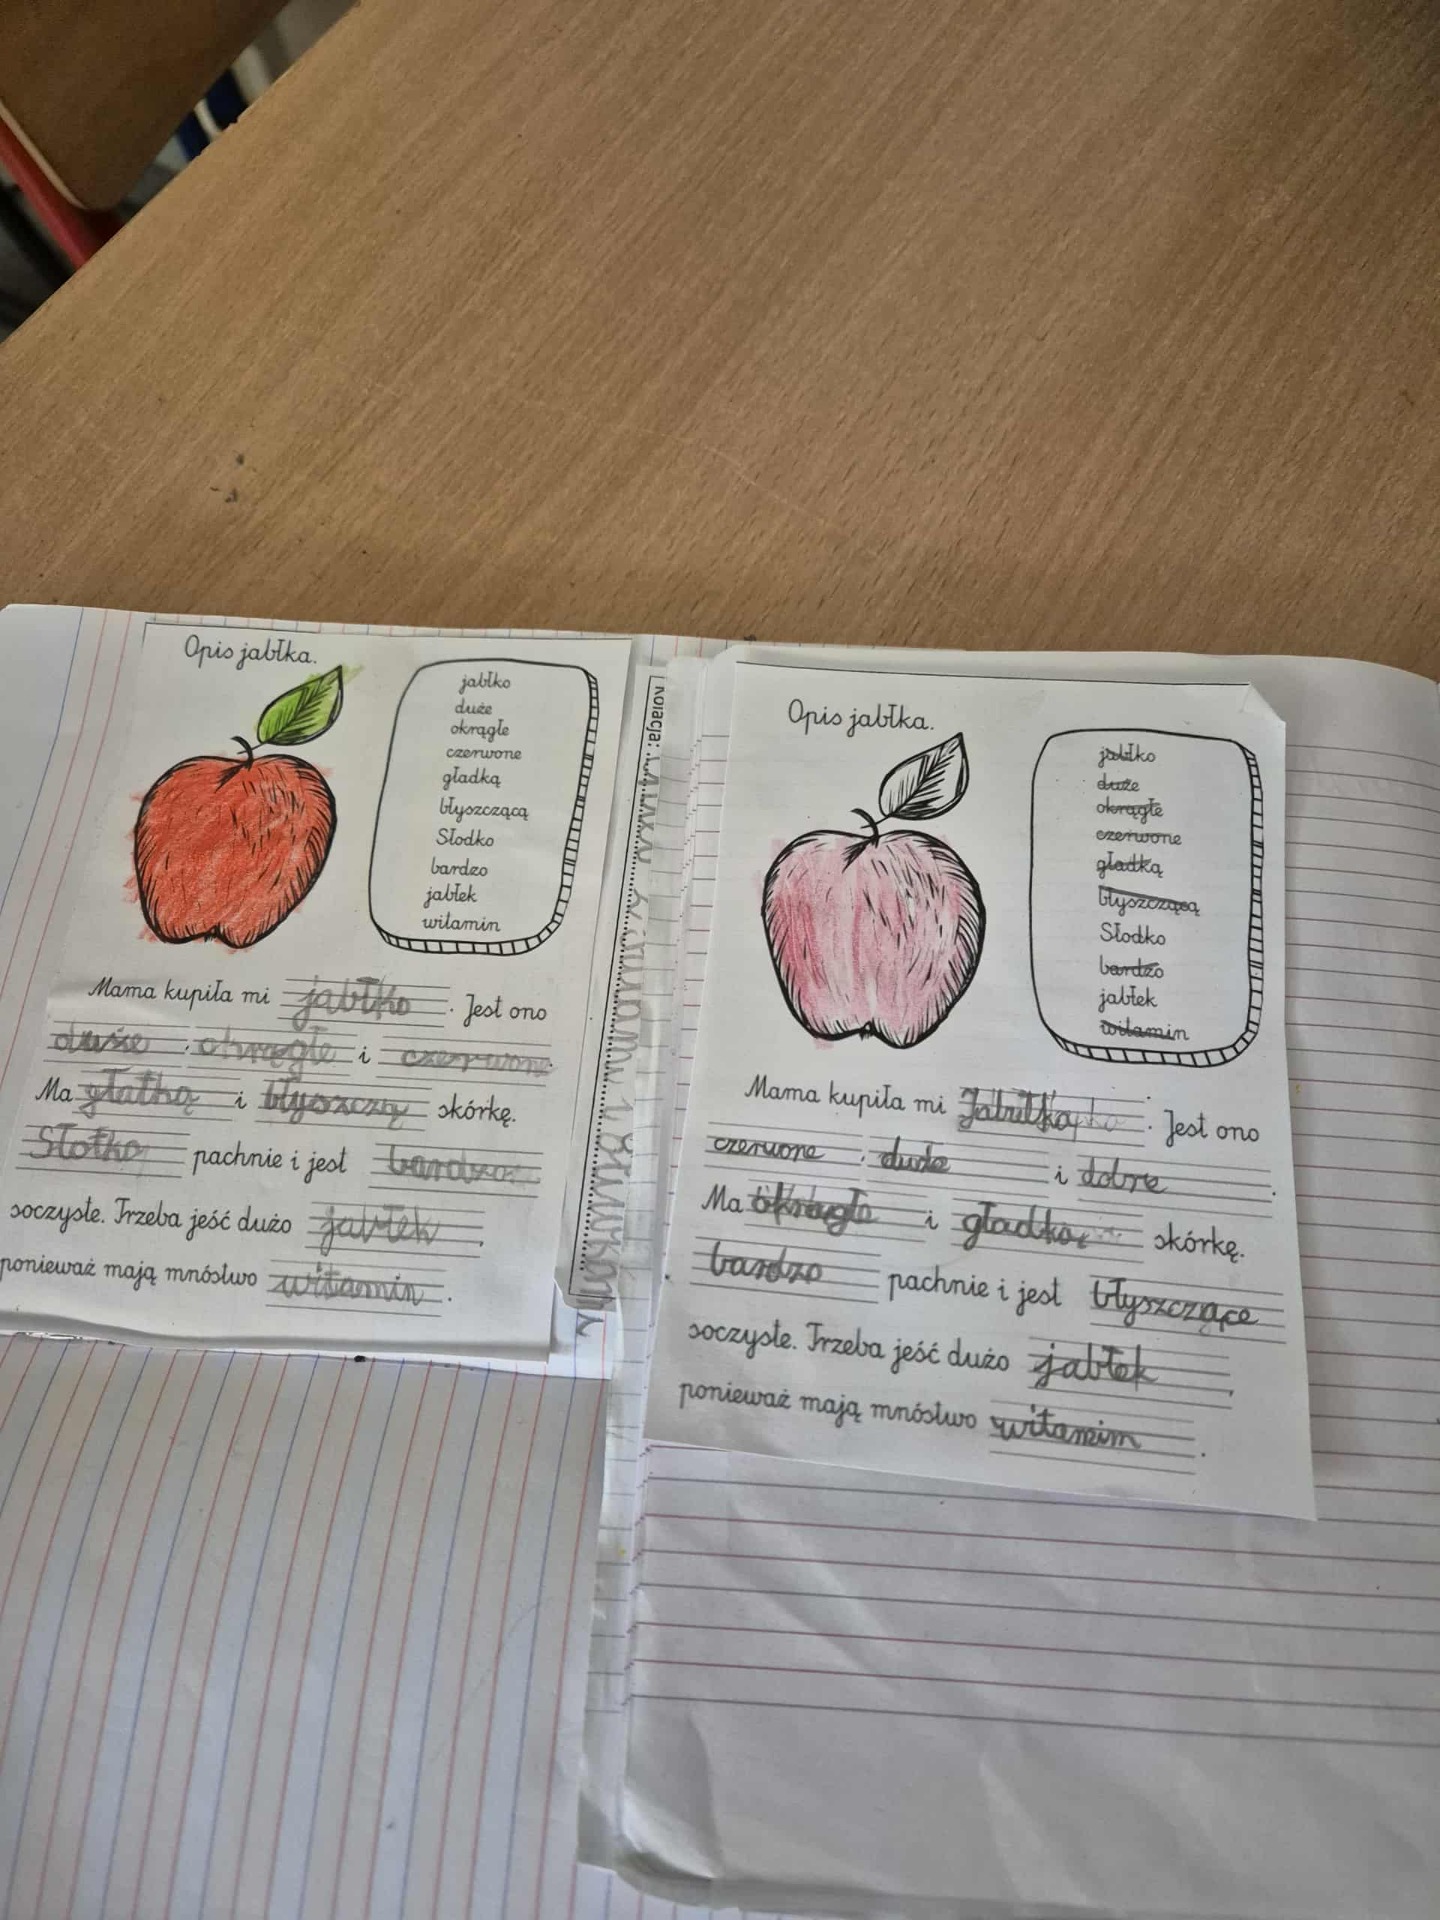 Opis jabłka.
jabłko
duże
okrągłe
czerwone
gładką
błyszczącą
Słodko
bardzo
jabłek
witamin
Mama kupiła mi jabłko. Jest ono
duże, okrągłe i czerwone.
Ma głatką i błyszczą skórkę.
Słotko pachnie i jest bardzo
soczyste. Trzeba jeść dużo jabłek,
ponieważ mają mnóstwo witamin.
kolacja:
Opis jabłka.
jabłko
duże
okrągłe
czerwone
gładką
błyszczącą
Słodko
bardzo
jabłek
witamin
Mama kupiła mi . Jest ono
czerwone, duże i dobre.
Ma okrągłe i gładką skórkę.
bardzo pachnie i jest błyszczące
soczyste. Trzeba jeść dużo jabłek,
ponieważ mają mnóstwo witamim.